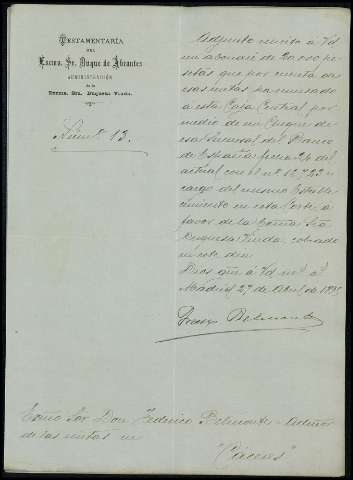 TESTAMENTARÍA
DEL
Excmo. Sr. Duque de Abrantes
ADMINISTRACIÓN
de la
Excma. Sra. Duquesa Viuda.
Núm.º 13.
Adjunto remito á Vd
un abonaré de 20.000 pe-
setas que por cuenta de
esas rentas ha remesado
á esta Casa Central por
medio de un Cheque de
esa Sucursal del Banco
de España fecha 24 del
actual con el nº 12,723 á
cargo del mismo Estable-
cimiento en esta Corte, á
favor de la Excma Sra
Duquesa Viuda, cobrado
en este dia.
Dios gue á Vd ms as
Madrid 27 de Abril de
Belmonte
Sor Don Federico Belmonte
de las rentas en
"Cáceres"